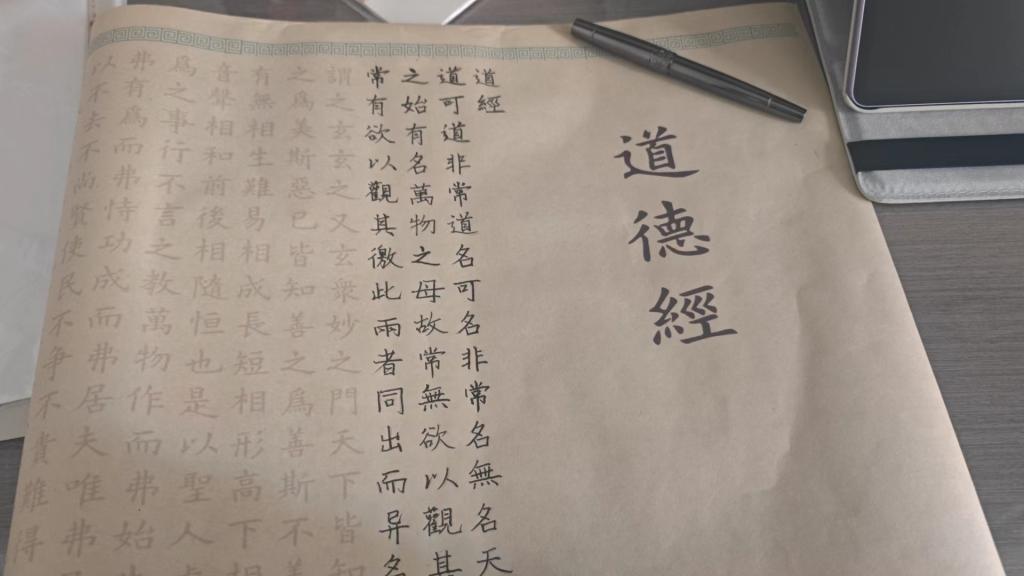 道德經
道經
道可道非常道名可名非常名無名天
之始有名萬物之母故常無欲以觀其
常有欲以觀其徼此兩者同出而异名
謂之玄玄之又玄衆妙之門天下皆知
之爲美斯惡已皆知善之爲善斯不
有無相生難易相成長短相形高下相
音聲相和前後相隨恒也是以聖人
爲之事行不言之教萬物作而弗始
弗有爲而弗恃功成而弗居夫唯弗
以不去不尚賢使民不爭不貴難得